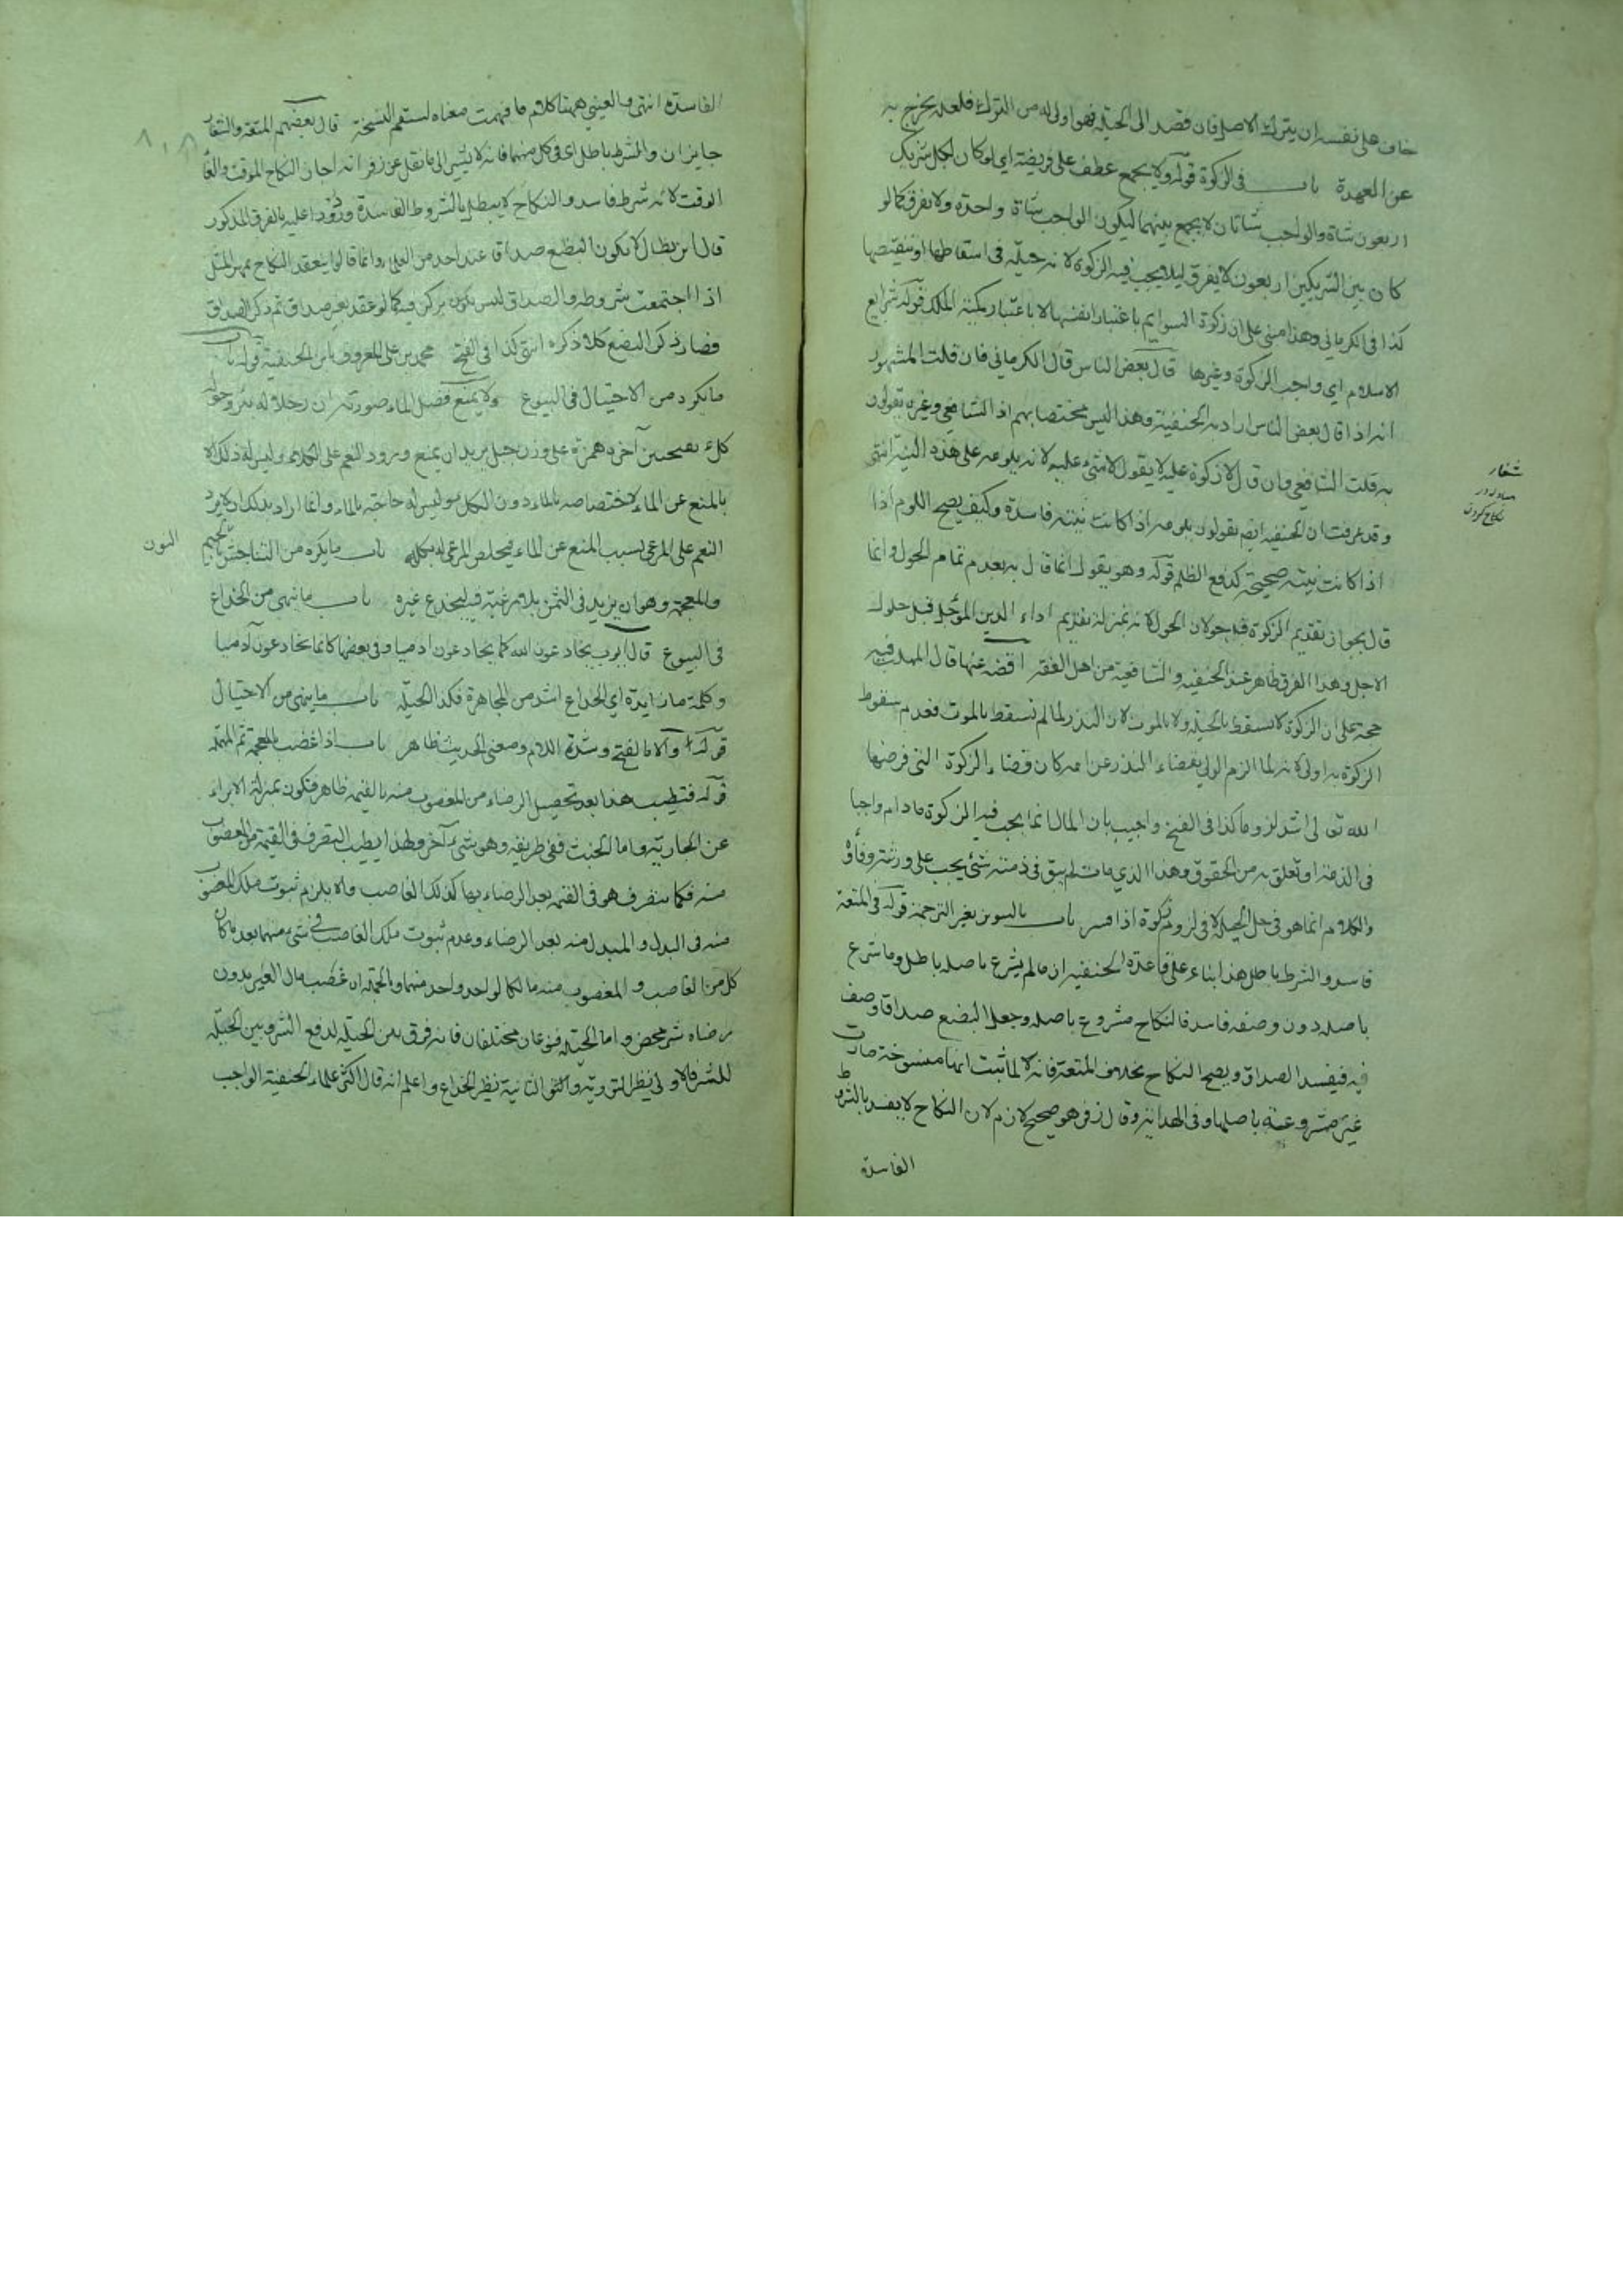 خاف على نفسه ان يترك الاصل فان قصد الى الحيلة فهو اولى له من الترك فلعله يخرج به
عن العهدة باب فى الزكوة قوله ولا يجمع عطف على فريضة اى لو كان لكل شريك
اربعون شاة والواجب شاتان لا يجمع بينهما ليكون الواجب شاة واحدة ولا يفرق كما لو
كان بين الشريكين اربعون لا يفرق ليلا يجب فيه الزكوة لانه حيلة فى اسقاطها او تنقيصها
كذا فى الكرمانى وهذا مبنى على ان زكوة السوايم باعتبار انفسها لا باعتبار ملكية الملك قوله شرايع
الاسلام اى واجب الزكوة وغيرها قال بعض الناس قال الكرمانى فان قلت المشهور
انه اذا قال بعض الناس اراد به الحنفية وهذا ليس مختصا بهم اذ الشافعى وغيره يقولون
به قلت الشافعى وان قال لا زكوة عليه لا يقول لا شىء عليه لانه يلومه على هذه النية انتهى
وقد عرفت ان الحنفية ايضا يقولون بلومه اذا كانت نيته فاسدة وكيف يصح اللوم اذا
اذا كانت نيته صحيحة كدفع الظلم قوله وهو يقول انما قال به بعدم تمام الحول وانما
قال بجواز تقديم الزكوة قبل حولان الحول لانه بمنزلة تقديم اداء الدين المؤجل قبل حلول
الاجل وهذا الفرق ظاهر عند الحنفية والشافعية من اهل الفقه اقضه عنها قال المهلب فيه
حجة على ان الزكوة لا تسقط بالحيلة ولا بالموت لان النذر لما لم تسقط بالموت فعدم سقوط
الزكوة به اولى لانه لما الزم الولى بقضاء النذر عن امه كان قضاء الزكوة التى فرضها
الله تعالى اشد لزوما كذا فى الفتح واجيب بان المال انما يجب فيه الزكوة مادام واجبا
فى الذمة او تعلق به من الحقوق وهذا الذى مات لم يبق فى ذمته شىء يجب على ورثته وفاؤه
والكلام انما هو فى حل الحيلة لا فى لزوم الزكوة اذا فسر باب بالتنوين بغير الترجمة قوله فى المتعة
فاسد والشرط باطل هذا بناء على قاعدة الحنفية ان ما لم يشرع باصله باطل وما شرع
باصله دون وصفه فاسد فالنكاح مشروع باصله وجعل البضع صداقا وصف
فيه فيفسد الصداق ويصح النكاح بخلاف المتعة فانه لما ثبت انها منسوخة صارت
غير مشروعة باصلها وفى الهداية وقال زفر هو صحيح لازم لان النكاح لا يفسد بالشروط
الفاسدة
شغار
نكاح كردن
الفاسدة انتهى والعينى ههنا كلام ما فهمت معناه لسقم النسخة قال بعضهم المتعة والشغار
جايزان والشرط باطل اى فى كل منهما فانه لا يشير الى ما نقل عن زفر انه اجاز النكاح الموقت والغا
الوقت لانه شرط فاسد والنكاح لا يبطل بالشروط الفاسدة وردوا عليه بالفرق المذكور
قال ابن بطال لا يكون البضع صداقا عند احد من العلماء وانما قالوا ينعقد النكاح بمهر المثل
اذا اجتمعت شروطه والصداق ليس بركن فيه كما لو عقد بغير صداق ثم ذكر الصداق
فصار ذكر البضع كلا ذكره انتهى كذا فى الفتح محمد بن على المعروف بابن الحنفية قوله باب
ما يكره من الاحتيال فى البيوع ولا يمنع فضل الماء صورته ان رجلا له بئر وحوله
كلأ بفتحتين آخره همزة على وزن جبل يريد ان يمنع ورود النعم على الكلاء وليس له ذلك الا
بالمنع عن الماء لاختصاصه بالماء دون الكلاء وليس له حاجة بالماء وانما اراد بذلك ان لا يرد
النعم على المرعى بسبب المنع عن الماء فيخلص المرعى له بكله باب ما يكره من التناجش بالجيم
النون
والمعجمة وهو ان يزيد فى الثمن بلا رغبة فيه ليخدع غيره باب ما نهى من الخداع
فى البيوع قال ايوب يخادعون الله كما يخادعون ادميا وفى بعضها كانما يخادعون آدميا
وكلمة ما زايدة اى الخداع اشد من المجاهرة فكذا الحيلة باب ما ينهى من الاحتيال
قوله والا بالفتح وشدة اللام ومعنى الحديث ظاهر باب اذا غضب بالمعجمة ثم المهملة
قوله فتطيب هذا بعد تحصيل الرضاء من المغصوب منه بالقيمة ظاهر فتكون بمنزلة الابراء
عن الجارية واما الخبث ففى طريقه وهو شىء آخر ولهذا يطيب التصرف فى القيمة للمغصوب
منه فكما يتصرف هو فى القيمة بعد الرضاء بها كذلك الغاصب والا يلزم ثبوت ملك المغصوب
منه فى البدل والمبدل منه بعد الرضاء وعدم ثبوت ملك الغاصب فى شىء منهما بعد ما كان
كل من الغاصب والمغصوب منه مالكا لواحد واحد منهما وبالجملة ان غصب مال الغير بدون
رضاه شر محض واما الحيلة فنوعان مختلفان فانه فرق بين الحيلة لدفع الشر وبين الحيلة
للشر فالاولى نظير التورية والثانية نظير الخداع واعلم انه قال اكثر علماء الحنفية الواجب